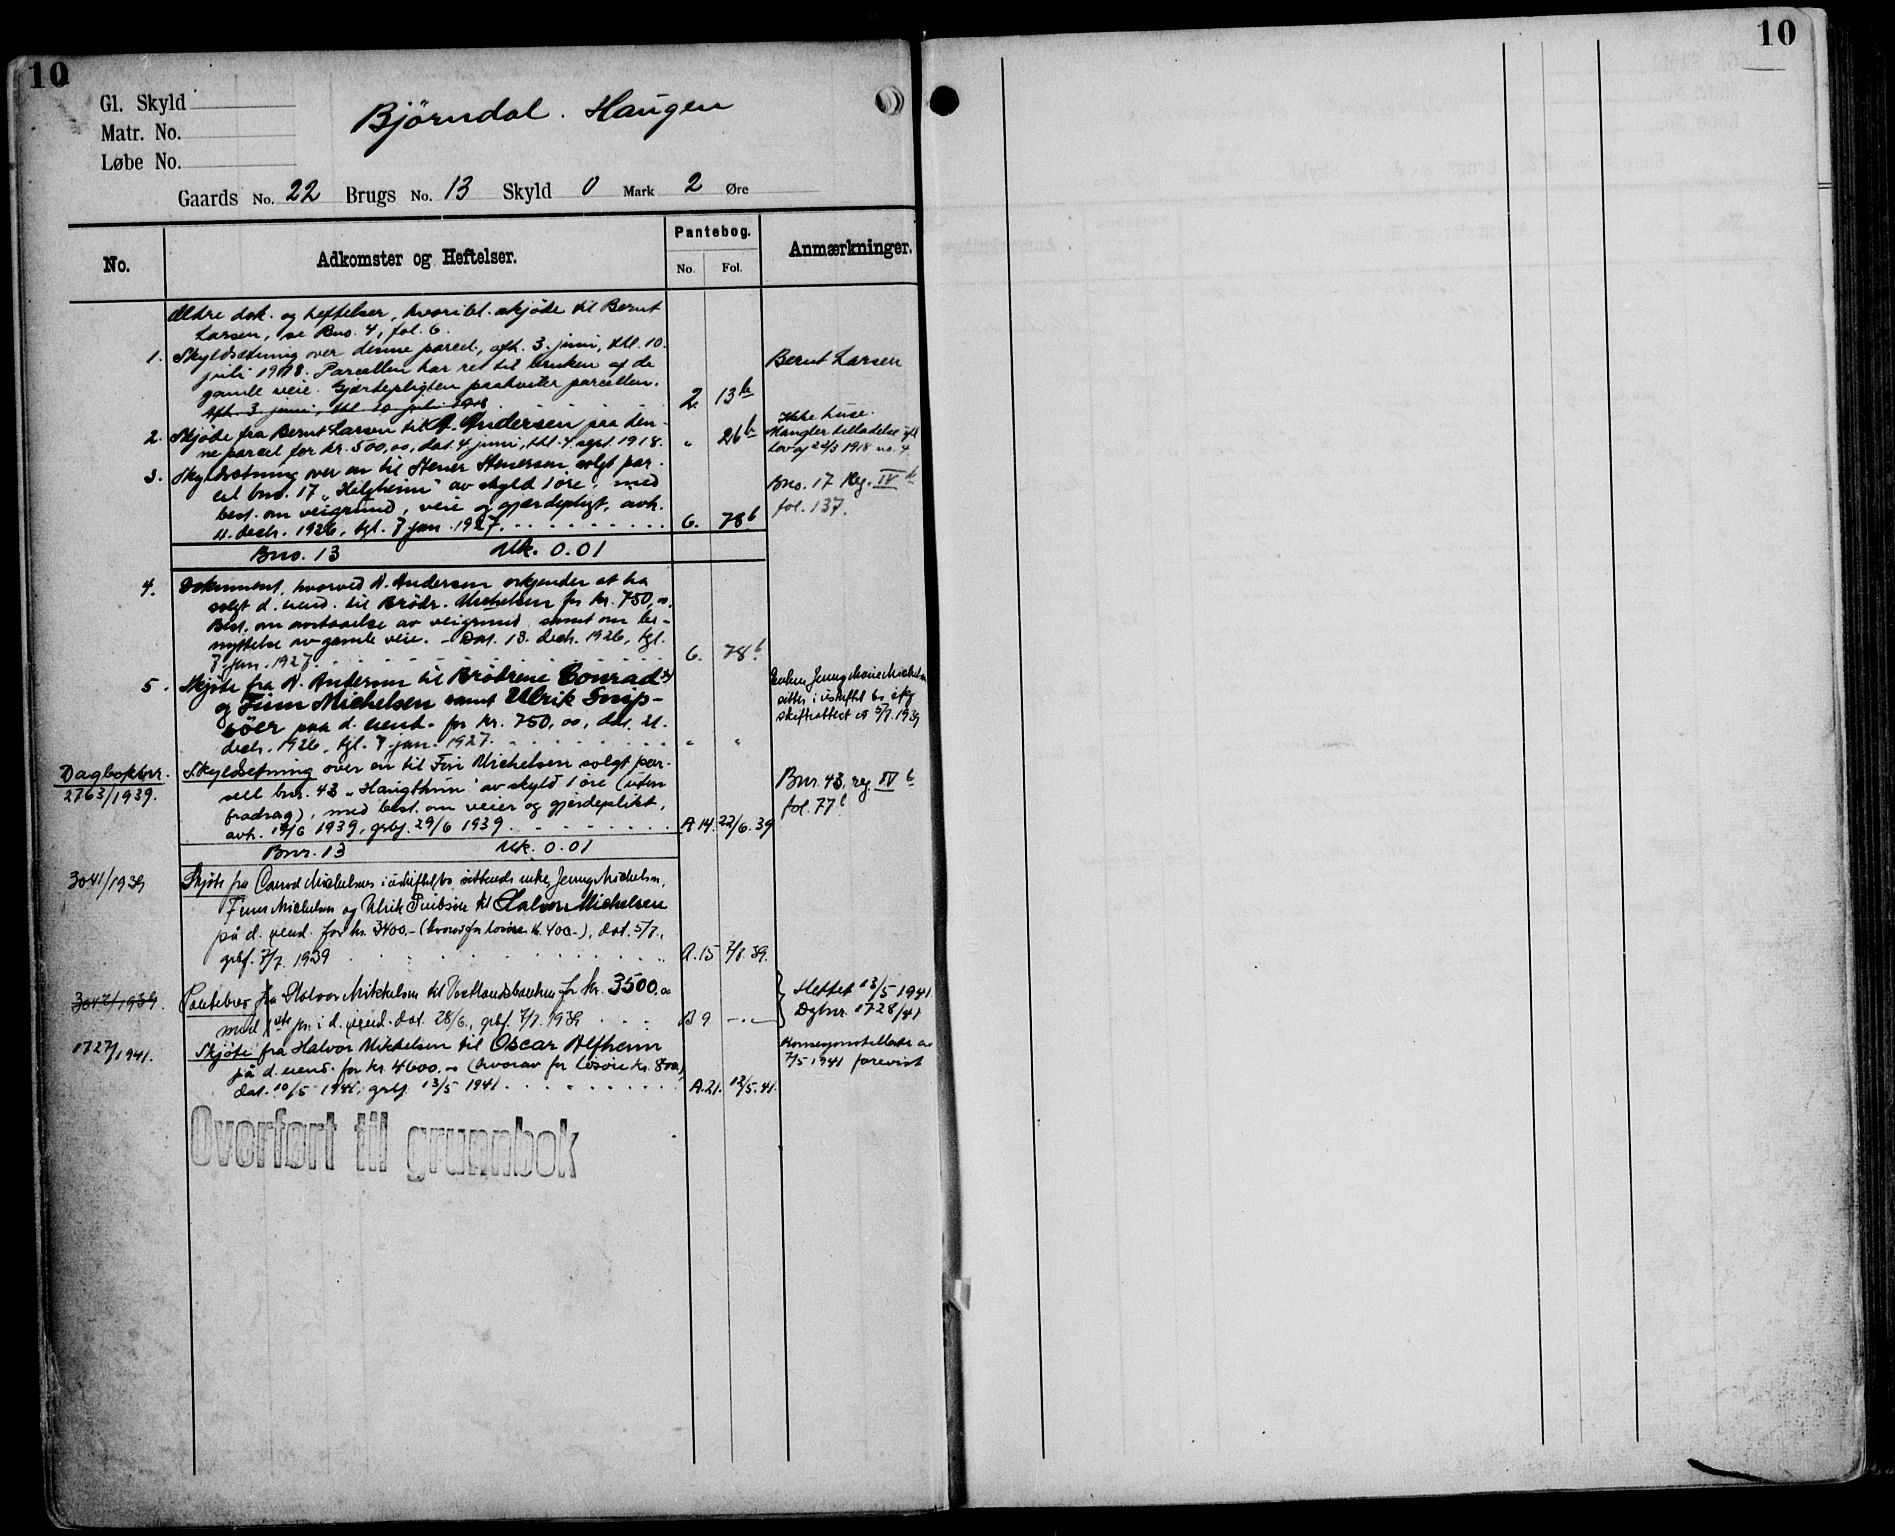 10
10
Gl. Skyld
Matr. No.
Løbe No.
Bjørndal. Haugen
Gaards No. 22 Brugs No. 13 Skyld 0 Mark 2 Øre
No.
Adkomster og Heftelser.
Pantebog.
No. Fol.
Anmærkninger.
Ældre dok. og heftelser, hvoribl. skjøde til Bernt
Larsen, se Bno. 4, fol. 6.
1. Skyldsetning over denne parcel, afh. 3. juni, thl. 10.
juli 1918. Parcellen har ret til bruken af de
gamle veie. Gjærdepligten paahviler parcellen.
2 13b
Bernt Larsen
Afh. 3. juni, thl. 10 juli 1918
2. Skjøde fra Bernt Larsen til A. Andersen paa den-
ne parcel for kr. 500,00, dat. 4 juni, thl. 4. sept. 1918.
" 26b
Ikke huse.
Mangler tilladelse
lov af 22/3 1918 no. 4
3. Skyldsetning over en til Stener Stenersen solgt par-
cel bno. 17 "Helgheim" av skyld 1 øre; med
best. om veigrund, veie og gjærdepligt, avh.
11. decbr. 1926, tgl. 7 jan. 1927.
6. 78b
Bno. 17 Reg. IV b
fol. 137.
Bno. 13 Mk. 0.01
4. Dokument, hvorved A. Andersen erkjender at ha
solgt d. eiend. til Brødr. Michelsen for kr. 750,00.
Best. om avstaaelse av veigrund samt om be-
nyttelse av gamle veie. - Dat. 13. decbr. 1926, tgl.
7 jan. 1927.
6. 78b
5. Skjøte fra A. Andersen til Brødrene Conrad
og Finn Michelsen samt Ulrik Snip-
søer paa d. eiend. for kr. 750,00, dat. 21.
decbr. 1926, tgl. 7 jan. 1927.
" "
Enken Jenny Marie Michelsen
sitter i uskiftet bo ifg
skifteattest av 5/7. 1939
Dagboknr.
2763/1939.
Skyldsetning over en til Finn Michelsen solgt par-
sell bnr. 43 "Haugthun" av skyld 1 øre (uten
fradrag), med best. om veier og gjerdeplikt,
avh. 19/6 1939, grbf. 29/6 1939.
A 14. 22/6. 39
Bnr. 43, reg. IV b
fol. 77b
Bnr. 13 Mk. 0.01
3041/1939
Skjøte fra Conrad Michelsens i uskiftet bo sittende enke, Jenny Michelsen,
Finn Michelsen og Ulrik Snibsøer til Halvor Michelsen
på d. eiend. for kr. 3400.- (hvorav for løsøre kr. 400.-), dat. 5/7.,
grbf. 7/7. 1939
A. 15 7/7. 39.
3042/1939.
Pantebrev fra Halvor Mikkelsen til Vestlandsbanken for kr. 3500.00
med 1ste pr. i d. eiend. dat. 28/6., grbf. 7/7. 1939
B 9 -.-
Slettet 13/5 1941
Dgbnr. 1728/41
1727/1941.
Skjøte fra Halvor Mikkelsen til Oscar Alfheim
på d. eiend. for kr. 4600.- (hvorav for løsøre kr. 800.)
dat. 10/5 1941, grbf. 13/5 1941.
A. 21. 12/5. 41.
Konsesjonstillatelse av
7/5 1941 forevist
Overført til grunnbok